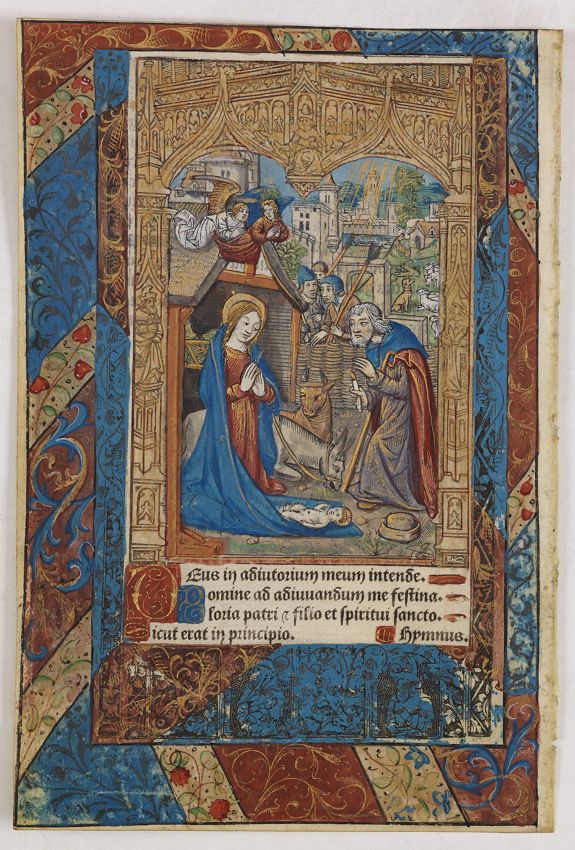 DEus in adiutorium meum intende.
Domine ad adiuuandum me festina.
Gloria patri ⁊ filio et spiritui sancto.
Sicut erat in principio. Hymnus.